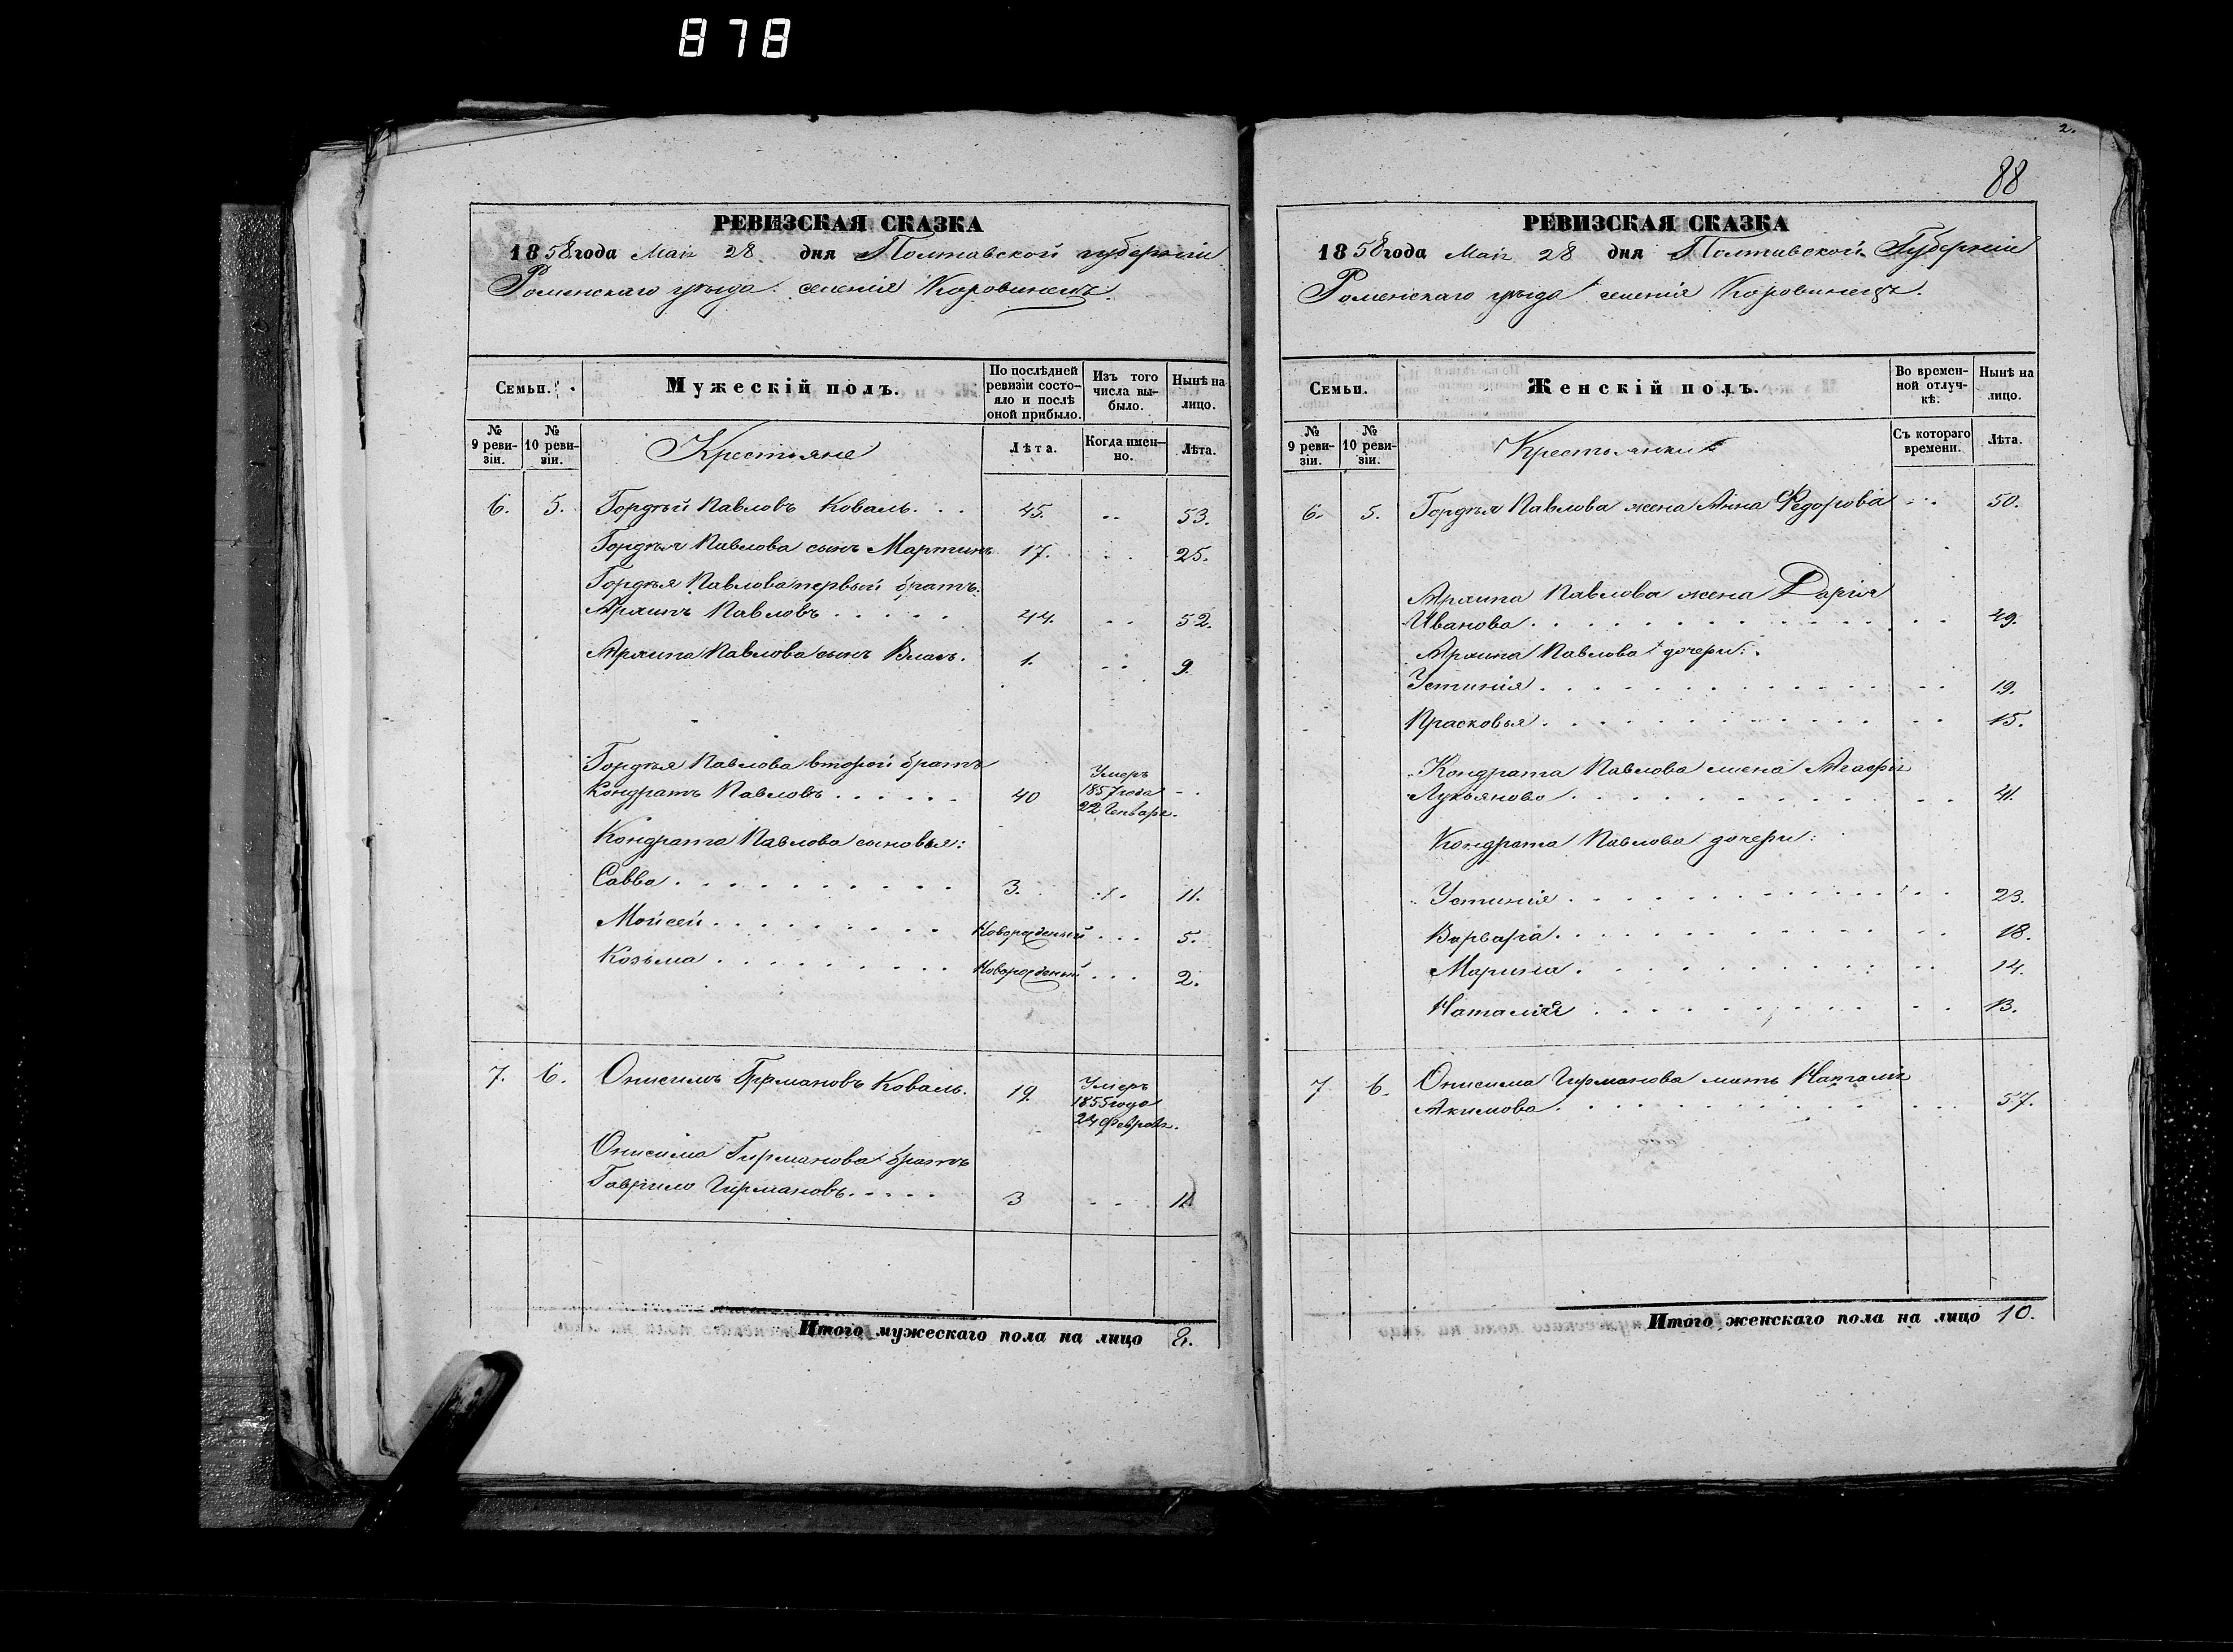 878
РЕВИЗСКАЯ СКАЗКА
1858 года Мая 28 дня Полтавской губерніи
Роменскаго уѣзда селенія Коровинецъ.
Семьи.
Мужескій полъ.
По послѣдней ревизіи состо-
яло и послѣ оной прибыло.
Изъ того числа вы-
было.
Нынѣ на лицо.
№ 9 реви-
зіи.
№ 10 реви-
зіи.
Крестьяне
Лѣта.
Когда имен-
но.
Лѣта.
6. 5. Гордѣй Павловъ Коваль. . . 45. . . 53.
Гордѣя Павлова сынъ Мартинъ 17. . . 25.
Гордѣя Павлова первый братъ.
Архипъ Павловъ . . . . . 44. . . 52.
Архипа Павлова сынъ Власъ. 1. . . 9.
Гордѣя Павлова второй братъ
Кондратъ Павловъ . . . . . . 40 Умеръ
1857 года
22 Генваря. . .
Кондрата Павлова сыновья:
Савва . . . . . . . . . . 3. . . 11.
Мойсей . . . . . . . . . Новорожденый . . . 5.
Козьма . . . . . . . . . Новорожденый . . . 2.
7. 6. Онисимъ Гирмановъ Коваль. 19. Умеръ
1855 года
24 Февраля.
Онисима Гирманова братъ
Гаврило Гирмановъ. . . . . 3 . . . 11
Итого мужескаго пола на лицо 8.
2.
88
РЕВИЗСКАЯ СКАЗКА
1858 года Мая 28 дня Полтавской Губерніи
Роменскаго уѣзда селенія Коровинецъ.
Семьи.
Женскій полъ.
Во времен-
ной отлуч-
кѣ.
Нынѣ на лицо.
№ 9 реви-
зіи.
№ 10 реви-
зіи.
Крестьянки
Съ котораго времени.
Лѣта.
6. 5. Гордѣя Павлова жена Анна Федорова . . . 50.
Архипа Павлова жена Дарія
Иванова . . . . . . . . . . . . . . 49.
Архипа Павлова дочери:
Устинія . . . . . . . . . . . . . . 19.
Прасковья . . . . . . . . . . . . . 15.
Кондрата Павлова жена Агафія
Лукьянова . . . . . . . . . . . . . 41.
Кондрата Павлова дочери:
Устинія . . . . . . . . . . . . . . 23.
Варвара . . . . . . . . . . . . . . 18.
Марина . . . . . . . . . . . . . . 14.
Наталія . . . . . . . . . . . . . 13.
7 6. Онисима Гирманова мать Наталія
Акимова . . . . . . . . . . . . . . 57.
Итого женскаго пола на лицо 10.